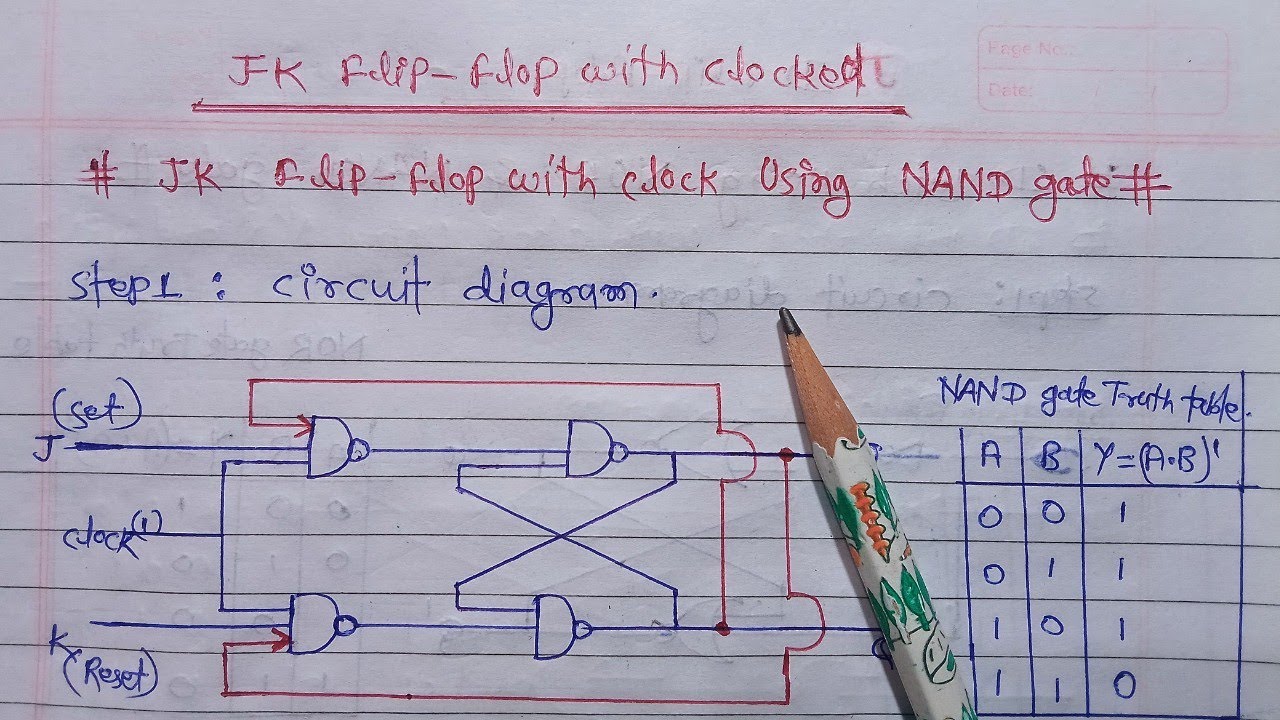 JK flip-flop with clocked
Page No.:
Date:
# JK flip-flop with clock Using NAND gate #
Step1 : circuit diagram.
NAND gate Truth table.
(Set)
J
clock(1)
K
(Reset)
A B Y=(A·B)'
0 0 1
0 1 1
1 0 1
1 1 0